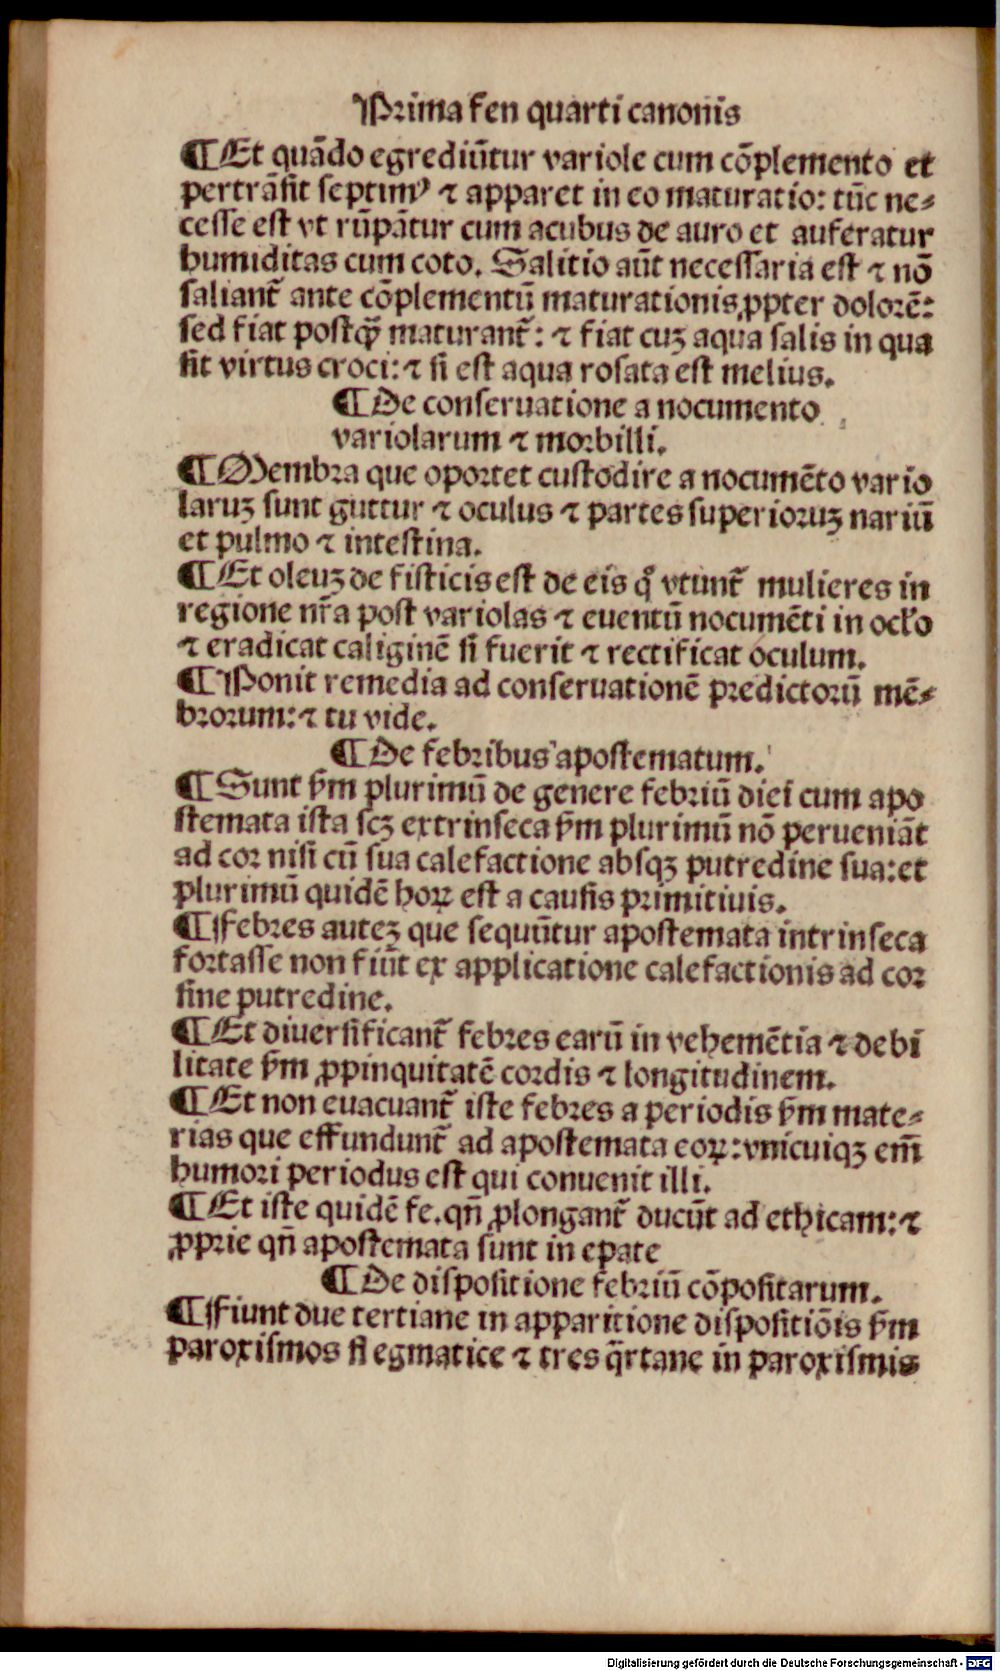 Prima fen quarti canonis
¶ Et quãdo egrediũtur variole cum cõplemento et
pertrãsit septimꝰ ⁊ apparet in eo maturatio: tũc ne⸗
cesse est vt rũpãtur cum acubus de auro et auferatur
humiditas cum coto. Salitio aũt necessaria est ⁊ nõ
saliant̃ ante cõplementũ maturationis ꝓpter dolorẽ:
sed fiat postꝙ̃ maturant̃: ⁊ fiat cuȝ aqua salis in qua
sit virtus croci: ⁊ si est aqua rosata est melius.
¶ De conseruatione a nocumento
variolarum ⁊ morbilli.
¶ Membra que oportet custodire a nocumẽto vario
laruȝ sunt guttur ⁊ oculus ⁊ partes superioruȝ nariũ
et pulmo ⁊ intestina.
¶ Et oleuȝ de fisticis est de eis q̃ vtunt̃ mulieres in
regione nr̃a post variolas ⁊ euentũ nocumẽti in ocľo
⁊ eradicat caliginẽ si fuerit ⁊ rectificat oculum.
¶ Ponit remedia ad conseruationẽ predictorũ mẽ⸗
brorum: ⁊ tu vide.
¶ De febribus apostematum.
¶ Sunt ẜm plurimũ de genere febriũ diei cum apo
stemata ista scȝ extrinseca ẜm plurimũ nõ perueniãt
ad cor nisi cũ sua calefactione absqȝ putredine sua: et
plurimũ quidẽ hoꝝ est a causis primitiuis.
¶ Febres auteȝ que sequũtur apostemata intrinseca
fortasse non fiũt ex applicatione calefactionis ad cor
sine putredine.
¶ Et diuersificant̃ febres earũ in vehemẽtia ⁊ debi
litate ẜm ꝓpinquitatẽ cordis ⁊ longitudinem.
¶ Et non euacuant̃ iste febres a periodis ẜm mate⸗
rias que effundunt̃ ad apostemata eoꝝ: vnicuiqȝ em̃
humori periodus est qui conuenit illi.
¶ Et iste quidẽ fe. qñ ꝓlongant̃ ducũt ad ethicam: ⁊
ꝓprie qñ apostemata sunt in epate
¶ De dispositione febriũ cõpositarum.
¶ Fiunt due tertiane in apparitione dispositiõis ẜm
paroxismos flegmatice ⁊ tres q̃rtane in paroxismis
Digitalisierung gefördert durch die Deutsche Forschungsgemeinschaft - DFG